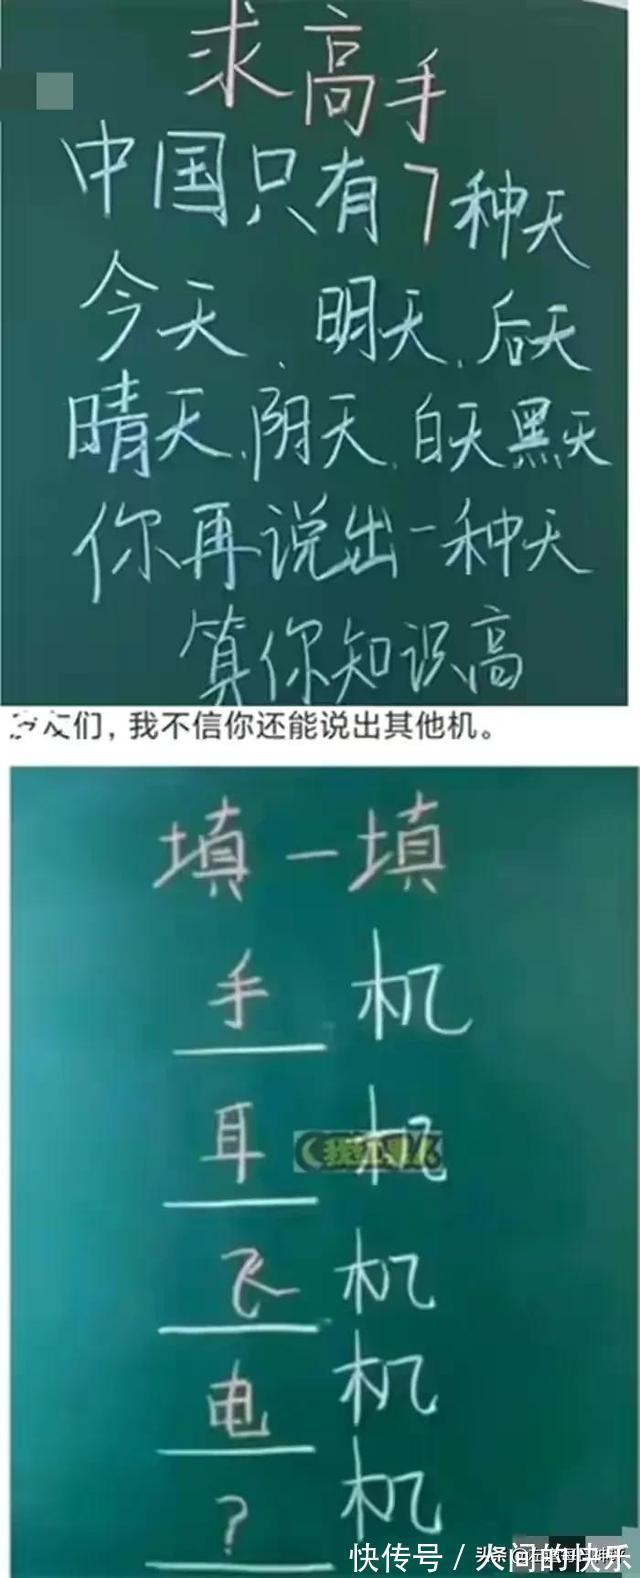 求高手
中国只有7种天
今天、明天、后天
晴天、阴天、白天黑天
你再说出一种天
算你知识高
们，我不信你还能说出其他机。
填一填
手机
耳机
飞机
电机
？机
快传号／人间的快乐
头条